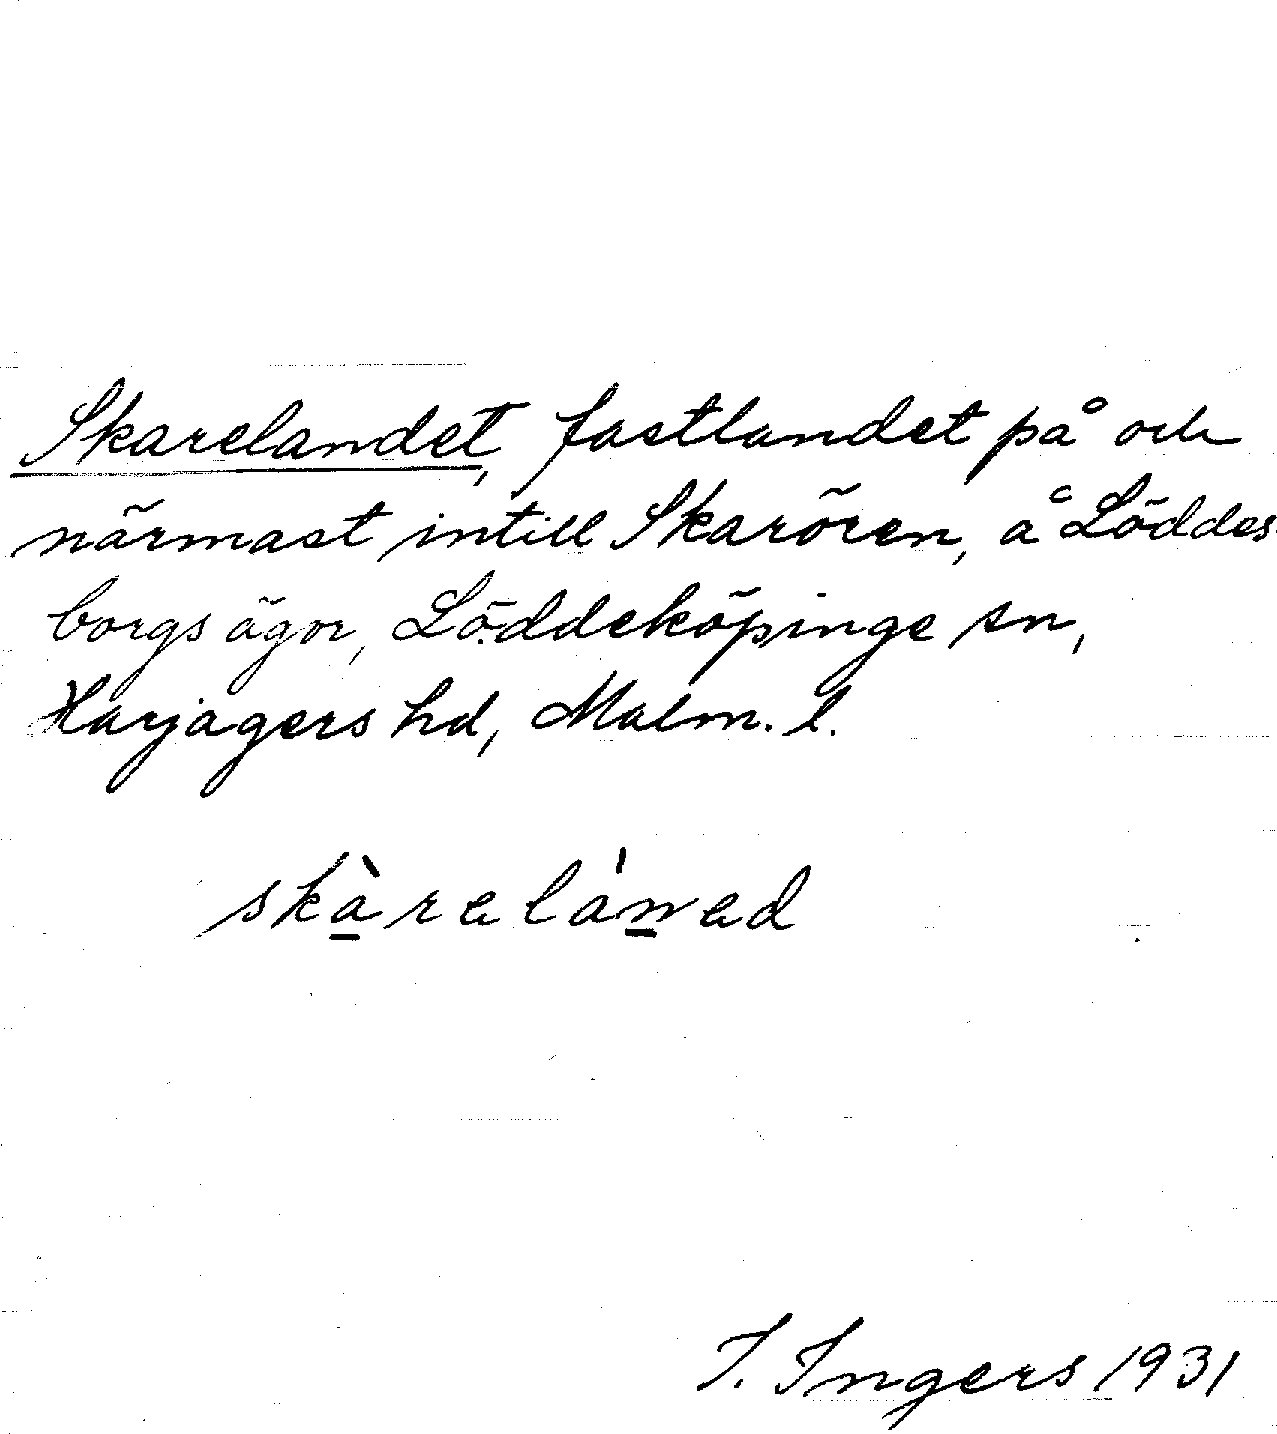 Skarelandet, fastlandet på och
närmast intill Skarören, å Löddes-
borgs ägor, Löddeköpinge sn,
Harjagers hd, Malm. l.
skàreláned
I. Ingers 1931